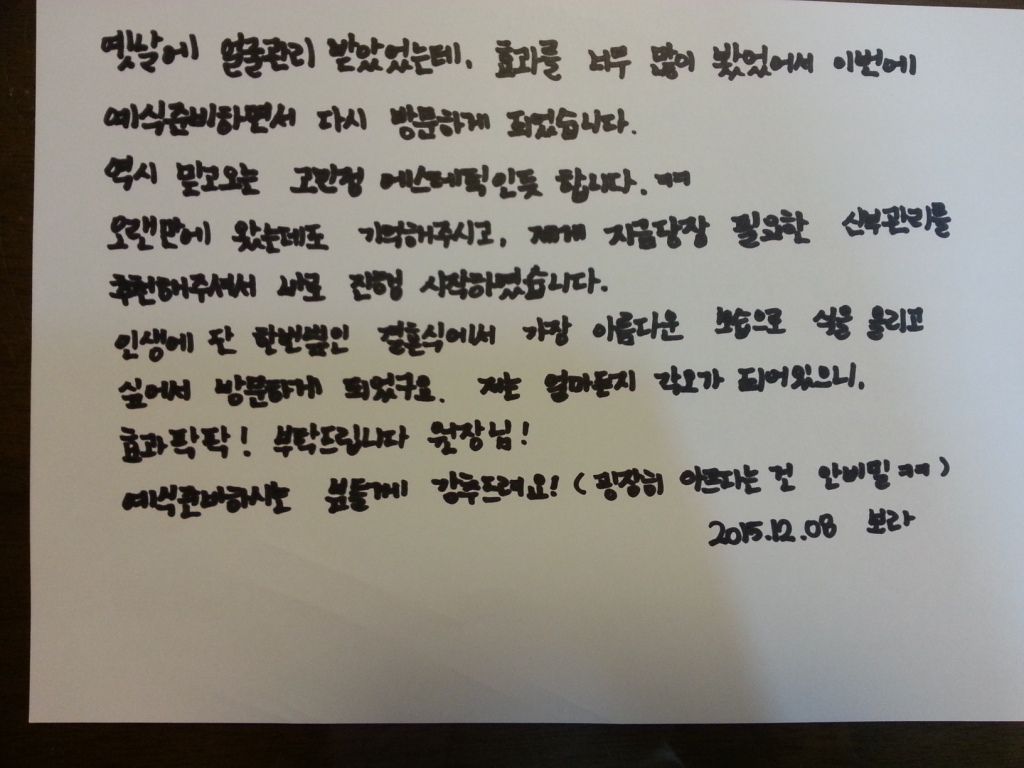 옛날에 얼굴관리 받았었는데, 효과를 너무 많이 봤었어서 이번에
예식준비하면서 다시 방문하게 되었습니다.
역시 믿고오는 고민정 에스테틱인듯 합니다. ㅋㅋ
오랜만에 왔는데도 기억해주시고, 제게 지금당장 필요한 신부관리를
추천해주셔서 바로 진행 시작하였습니다.
인생에 단 한번뿐인 결혼식에서 가장 아름다운 모습으로 식을 올리고
싶어서 방문하게 되었구요. 저는 얼마든지 각오가 되어있으니,
효과팍팍! 부탁드립니다 원장님!
예식준비하시는 분들께 강추드려요! (굉장히 아프다는 건 안비밀ㅋㅋ)
2015.12.08 보라